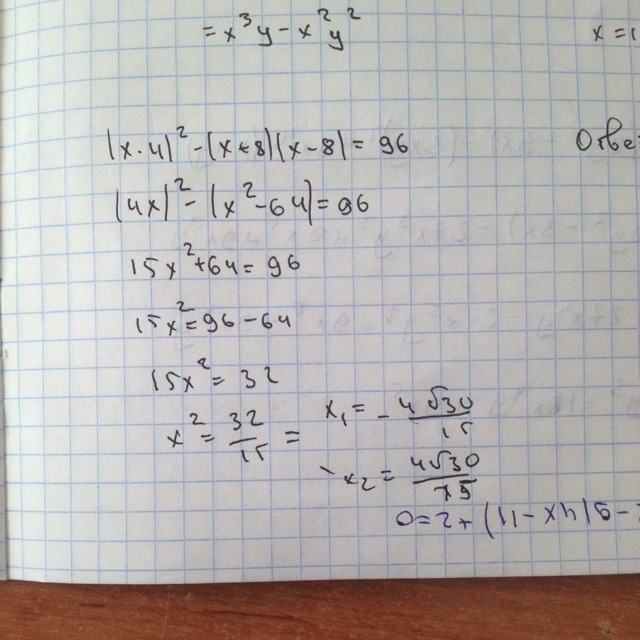 = x³y - x²y²
x = 1
(x·4)² - (x+8)(x-8) = 96
Отве
(4x)² - (x²-64) = 96
15x² + 64 = 96
15x² = 96 - 64
15x² = 32
x² = 32/15 =
x₁ = - 4√30/15
x₂ = 4√30/15
-9(4x-11)+2=0